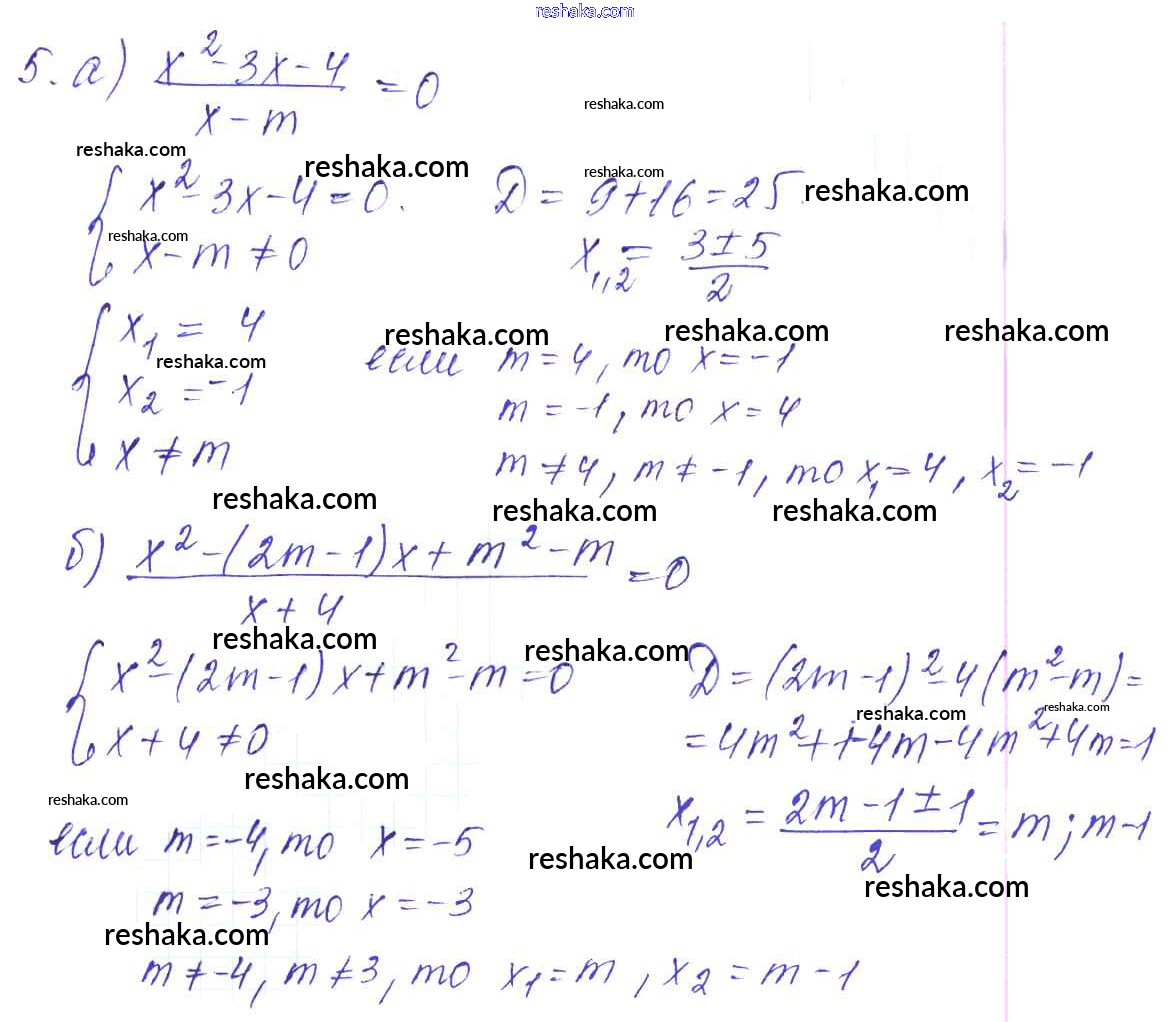 reshaka.com
5. а) (x² - 3x - 4)/(x - m) = 0
reshaka.com
reshaka.com reshaka.com reshaka.com reshaka.com
{ x² - 3x - 4 = 0. D = 9 + 16 = 25
reshaka.com
x - m ≠ 0 x₁,₂ = (3 ± 5)/2
{ x₁ = 4
reshaka.com reshaka.com reshaka.com
reshaka.com
если m = 4, то x = -1
x₂ = -1 m = -1, то x = 4
x ≠ m m ≠ 4, m ≠ -1, то x₁ = 4, x₂ = -1
reshaka.com reshaka.com reshaka.com
б) (x² - (2m - 1)x + m² - m)/(x + 4) = 0
reshaka.com reshaka.com
{ x² - (2m - 1)x + m² - m = 0 D = (2m - 1)² - 4(m² - m) =
reshaka.com reshaka.com
x + 4 ≠ 0 = 4m² + + -4m - 4m² + 4m = 1
reshaka.com
reshaka.com
x₁,₂ = (2m - 1 ± 1)/2 = m; m - 1
если m = -4, то x = -5
reshaka.com
reshaka.com
m = -3, то x = -3
reshaka.com
m ≠ -4, m ≠ 3, то x₁ = m, x₂ = m - 1